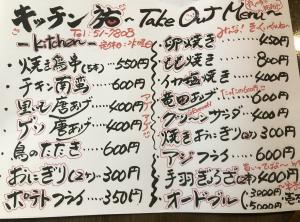 キッチン 宛 ~ Take Out Menu ~
Tel: 51-7803
- kitchen -
・焼き鳥串(5本)…550円
・チキン南蛮……600円
・黒モモ唐あげ…400円
・ゲソ唐あげ……400円
・鳥のたたき……600円
・おにぎり(2ケ)…300円
・ポテトフライ…350円
・卵焼き……450円
・もも焼き……800円
・イカ塩焼き……400円
・竜田あげ……600円
・クリーンサラダ…400円
・焼きおにぎり(2ケ)300円
・アジフライ……600円
・手羽ぎょうざ(2ケ)400円
・オードブル
3000円
5000円